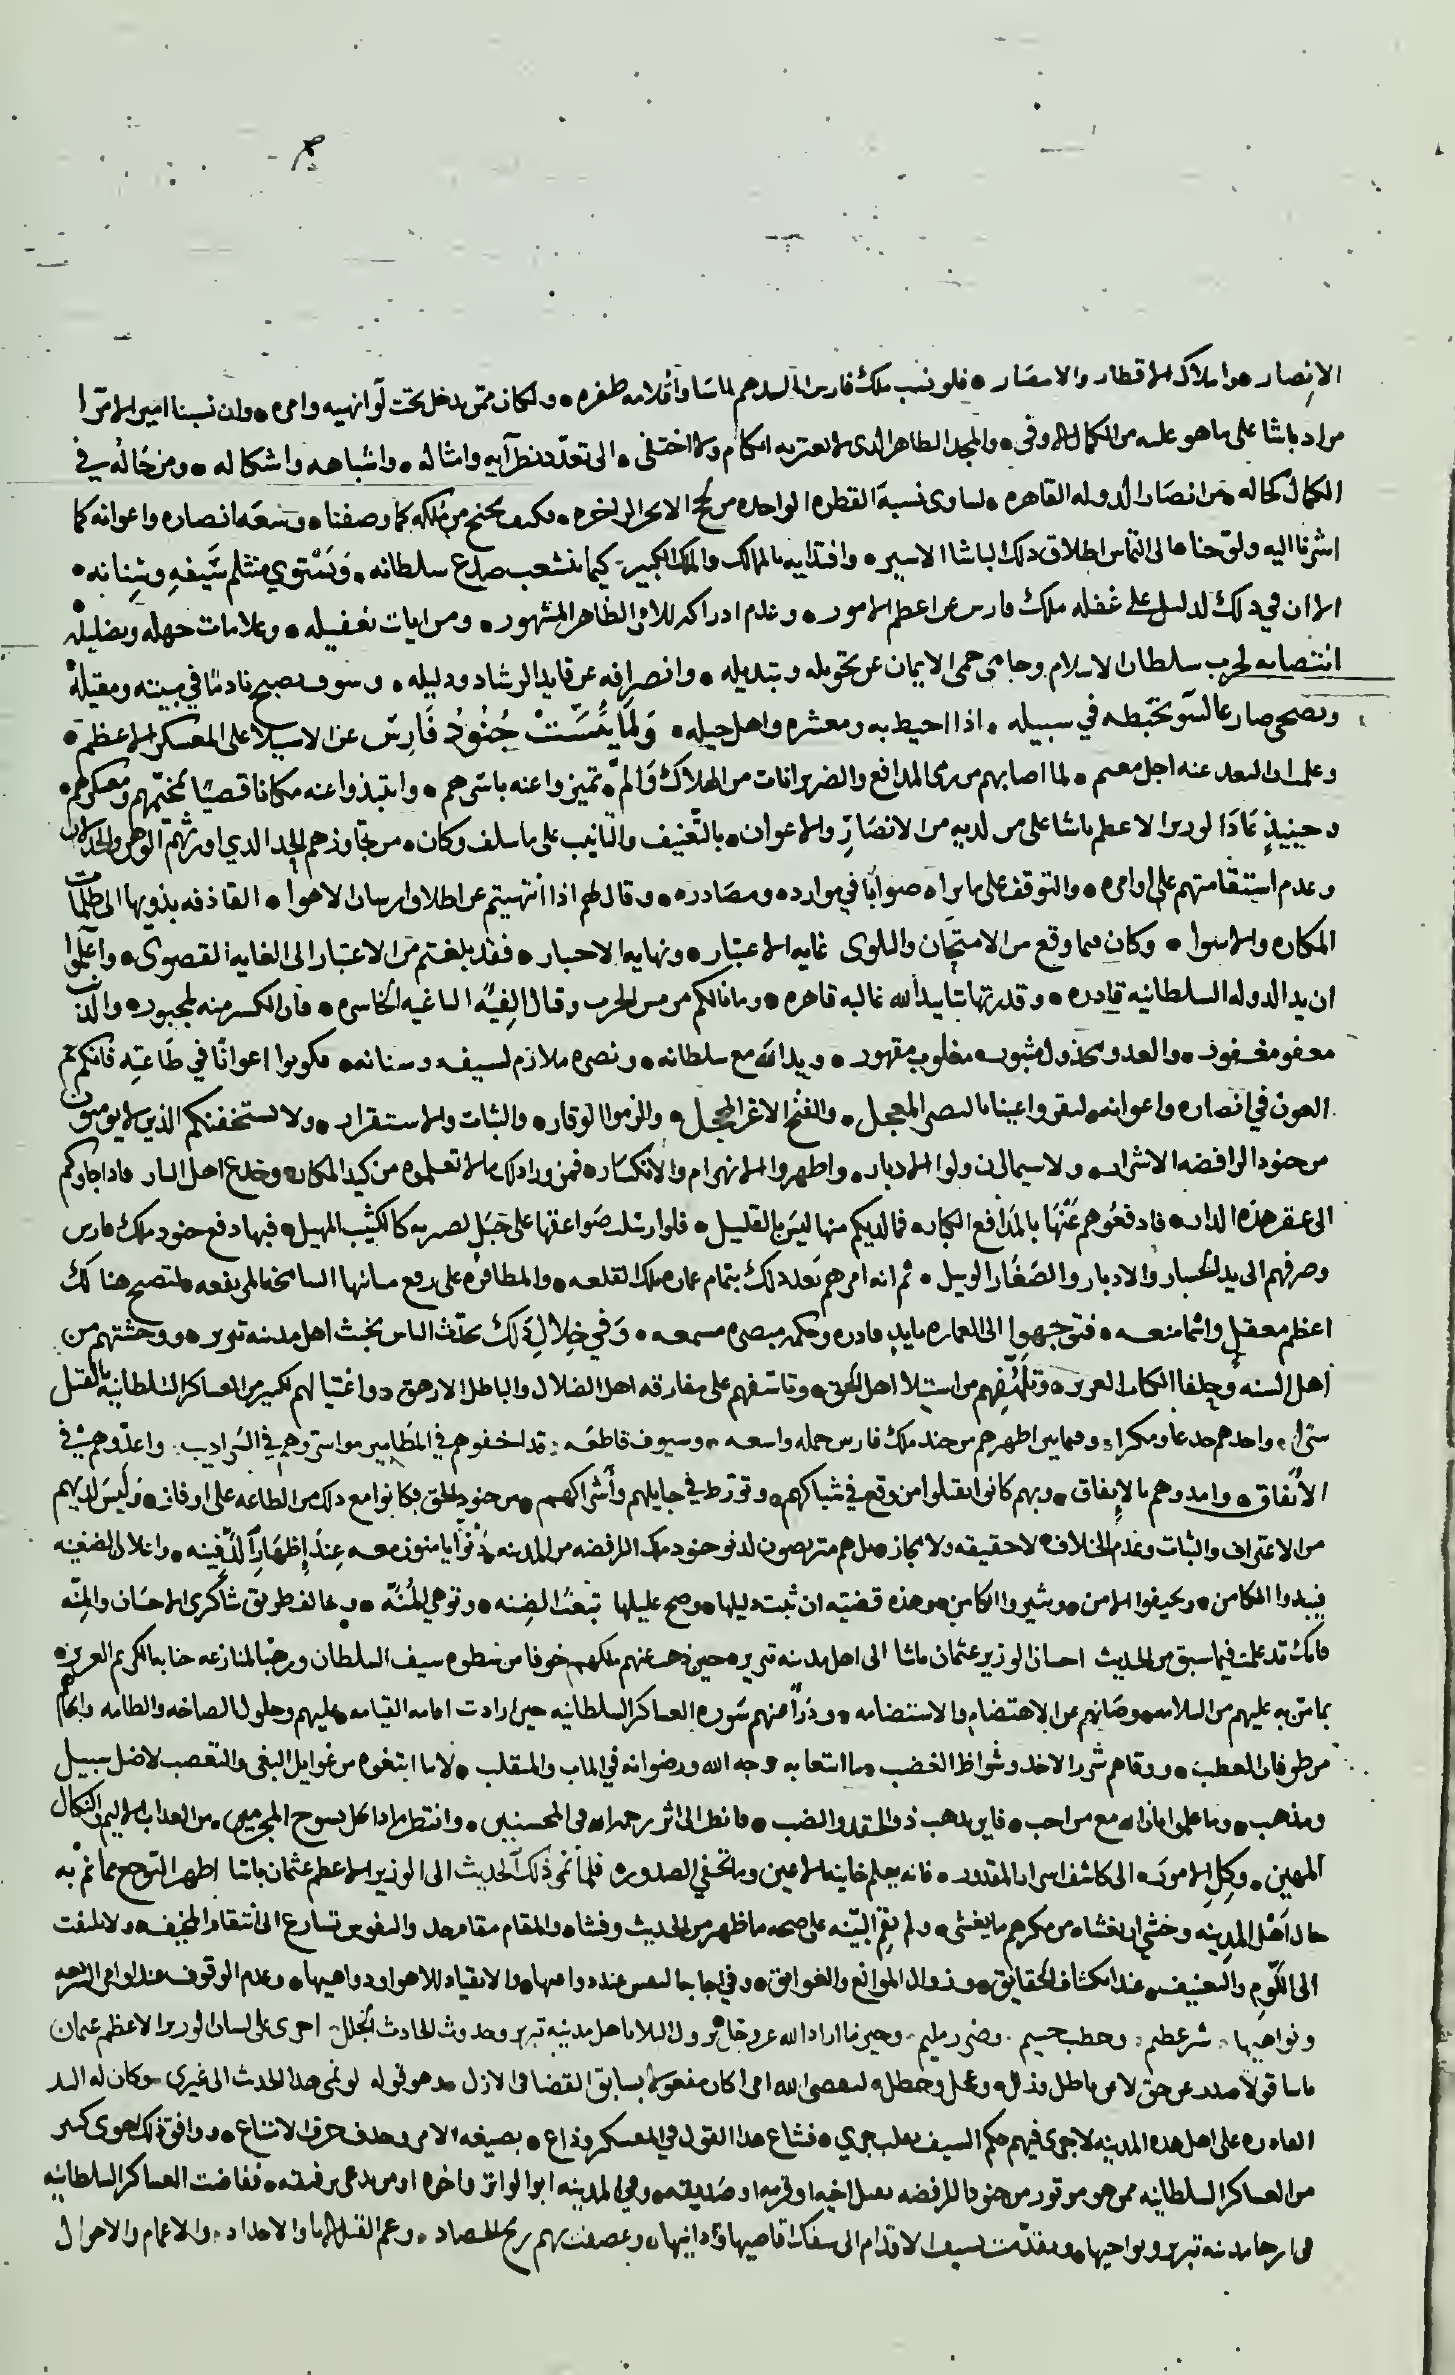 الانصار • واملاك الاقطار والامصار • فلو نسب ملك فارس الى اسدهم لماساوا قلامه ظفره • ولكان ممن يدخل تحت لوا نهيه وامره • وان نسبنا امير الامرا
مراد باشا على ما هو عليه من الكمال الاوفى • والمجد الظاهر الدى لا يعتريه انكام ولا اختفى • الى تعدد نظرآيه وامثاله • واشباهه واشكاله • ومن حاله في
الكمال كحاله • من انصار الدوله القاهره • لساوى نسبة القطره الواحده من لج الابحر الزاخره • فكيف يجنح من ملكه كما وصفنا • وسعه انصاره واعوانه كما
اشرنا اليه ولوحنا • الى التماس اطلاق دلك الباشا الاسير • وافتدايه بالممالك والملك الكبير • كيما ينشعب صدع سلطانه • ويستوي منثلم سيفه وسنانه •
الا ان في دلك لدليل على غفله ملك فارس عن اعظم الامور • وعدم ادراكه للامر الظاهر المشهور • ومن ايات تغفيله • وعلامات جهله وتضليله
انتصابه لحرب سلطان الاسلام وحامى حمى الايمان عن تحويله وتبديله • وانصرافه عن قايد الرشاد ودليله • وسوف يصبح نادما في مبيته ومقيله
ويضحى صارعا لسو تخبطه في سبيله • اذا احيط به ومعشره واهل جيله • ولما يئست جنود فارس عن الاستيلا على المعسكر الاعظم •
وعلموا ان البعد عنه اجل مغنم • لما اصابهم من رمى المدافع والضربزانات من الهلاك والم • تميزوا عنه باسرهم • وانتبذوا عنه مكانا قصيا بمخيمهم ومعسكرهم •
وحينيذ عاد الوزير الاعظم باشا على من لديه من الانصار والاعوان • بالتعنيف والتانيب على ما سلف وكان • من تجاوزهم الحد الدي اورثهم الوهن والخذلان
وعدم استقامتهم على اوامره • والتوقف على ما يراه صوابا في موارده ومصادره • وقال لهم اذا انتهيتم عن اطلاق ارسان الاهوا • القاذفه بذويها الى ظلمات
المكاره والاسوا • وكان فيما وقع من الامتحان والبلوى غايه الاعتبار • ونهايه الاختبار • فقد بلغتم من الاعتبار الى الغايه القصوى • واعلموا
ان يد الدوله السلطانيه قادره • وقدرتها بتاييد الله غالبه قاهره • وما نالكم من مس الحرب وقتال الفيه الباغيه الخاسره • فان الكسر منه لمجبور • والذنب
معفو مغفور • والعدو مخذول مثبور مغلوب مقهور • ويد الله مع سلطانه • ونصره ملازم لسيفه وسنانه • فكونوا اعوانا في طاعته فانكم نعم
العون في انصاره واعوانه • لتقروا عينا بالنصر المعجل • والفتح الاغر المحجل • والزموا الوقار • والثبات والاستقرار • ولا يستخفنكم الذين لا يوقنون
من جنود الرافضه الاشرار • ولا سيما ان ولوا الادبار • واظهروا الانهزام والانكسار • فمن ورا ذلك ما لا تعلموه من كيد المكار • وخدع اهل النار فاذا جاوكم
الى عقر هذه الدار • فادفعوهم عنها بالمدافع الكبار • فما لديكم منها ليس بالقليل • فلو ارسلت صواعقها على جبل لصيرته كالكثيب المهيل • فبها دفع جنود ملك فارس
وصرفهم الى يد الخسار والادبار والصغار الوبيل • ثم انه امرهم بعد ذلك بتمام عماره تلك القلعه • والمظافره على رفع مبانيها السامخه المرتفعه • لتصبح هنالك
اعظم معقل وامنا منعه • فتوجهوا الى العماره بايد قادره وحكمه مبصره مسمعه • وفي خلال ذلك تحدث الناس بخبث اهل مدينه تبريز • ووحشتهم من
اهل السنه وحلفا الكتاب العزيز • وتلهفهم من استيلا اهل الحق • وتاسفهم على مفارقه اهل الضلال والباطل الازهق • واغتيالهم لكثير من العساكر السلطانيه بالقتل
سرا • واخذهم خدعا ومكرا • وفيما بين اظهرهم من جند ملك فارس جمله واسعه • وسيوف قاطعه • قد اخفوهم في المطامير • وستروهم في السراديب • واعدوهم في
الانفاق • وامدوهم بالانفاق • وبهم كانوا يقتلوا من وقع في شباكهم • وتورط في حبايلهم واشراكهم • من جنود الحق فكانوا مع ذلك من الطاعه على اوفاق • وليس لديهم
من الاعتراف والثبات وعدم الخلاف • لا حقيقه ولا مجاز • بل هم متربصون لدنو جنود ملك الرافضه من المدينه دنوا يامنون معه عند اظهار الدفينه • واعلان الضغينه
فيبدوا المكامن • ويخيفوا الامن • ويثيروا الكامن • وهذه قضيه ان ثبت دليلها • وصح عليلها تبعث الضنه • وتوهي المنه • ويخالف طريق شاكرى الاحسان والمنه
فانك قد علمت فيما سبق من الحديث احسان الوزير عثمان باشا الى اهل مدينه تبريز حين ذهب عنهم ملكهم خوفا من سطوه سيف السلطان ورهبا لمنازعه جنابه الكريم العزيز
بما من به عليهم من السلامه • وصانهم عن الاهتضام والاستضامه • ودرا عنهم سوره العساكر السلطانيه حين ارادت اقامه القيامه عليهم وحلول الصاخه والطامه وانجاهم
من طوفان العطب • ووقاهم شرر الاخذ وشواظ الغضب • ما ابتغا به وجه الله ورضوانه في الماب والمنقلب • لا ما ابتغوه من غوايل البغى والتعصب لاضل سبيل
ومذهب • وما علموا بان الله مع من احب • فاين يذهب ذو الحقد والنصب • فانظر الى اثر رحمه الله فى المحسنين • وانتظر ماذا يحل بسوح المجرمين • من العذاب الاليم والنكال
المهين • وكل الامور • الى كاشف اسرار المقدور • فانه يعلم خاينه الاعين وما تخفي الصدور • فلما نمى ذلك الحديث الى الوزير الاعظم عثمان باشا اظهر التوجع مما نم به
حال اهل المدينه وخشي ان يغشاه من مكرهم ما يغشى • ولم تقم البينه على صحه ما ظهر من الحديث وفشا • والمقام مقام جد والنفوس تسارع الى انتقام المخيف • ولا تلتفت
الى اللوم والتعنيف • عند انكشاف الحقايق • وزوال الموانع والعوايق • وفي اجابه النفس عند دواعيها • والانقياد للاهوا ودواهيها • وعدم الوقوف عند اوامر الشريعه
ونواهيها • شر عظيم • وخطب جسيم • وضرر مليم • وحين ما اراد الله عز وجل نزول البلا باهل مدينه تبريز وحدوث الحادث الجلل • اجرى على لسان الوزير الاعظم عثمان
باشا قولا صدر عن حق لا عن باطل وزلل • وعجل وخطل • ليقضى الله امرا كان مفعولا بسابق القضا فى الازل • هو قوله لو نمى هذا الحديث الى غيري • وكان له اليد
القادره على اهل هذه المدينه لاجرى فيهم حكم السيف بقلب جري • فشاع هذا القول في المعسكر وذاع • بصيغه الامر وحذف حرف الامتناع • ووافق ذلك هوى كثير
من العساكر السلطانيه ممن هو موتور من جنود الرافضه بقتل اخيه او قريبه او صديقه • وفي المدينه ابو الواتر واخوه او من يدعى برفيقه • ففاضت العساكر السلطانيه
فى ارجا مدينه تبريز ونواحيها • وتقدمت بسيف الاقدام الى سفك اقاصيها وادانيها • وعصفت بهم ريح الحصاد • وعم القتل الابا والاجداد • والاعمام والاخوال